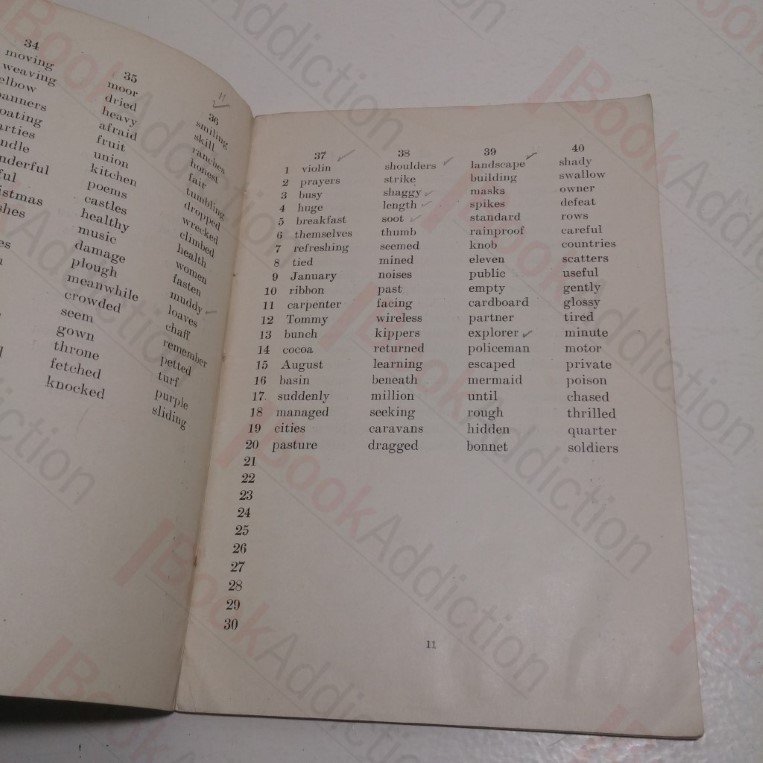 34
moving
weaving
elbow
35
moor
dried
heavy
afraid
fruit
union
kitchen
poems
castles
healthy
music
damage
plough
meanwhile
crowded
seem
gown
throne
fetched
knocked
11
36
smiling
skill
ranches
honest
fair
tumbling
dropped
wrecked
climbed
health
women
fasten
muddy
loaves
chaff
remember
petted
turf
purple
sliding
37 38 39 40
1 violin shoulders landscape shady
2 prayers strike building swallow
3 busy shaggy masks owner
4 huge length spikes defeat
5 breakfast soot standard rows
6 themselves thumb rainproof careful
7 refreshing seemed knob countries
8 tied mined eleven scatters
9 January noises public useful
10 ribbon past empty gently
11 carpenter facing cardboard glossy
12 Tommy wireless partner tired
13 bunch kippers explorer minute
14 cocoa returned policeman motor
15 August learning escaped private
16 basin beneath mermaid poison
17 suddenly million until chased
18 managed seeking rough thrilled
19 cities caravans hidden quarter
20 pasture dragged bonnet soldiers
21
22
23
24
25
26
27
28
29
30
11
BookAddiction